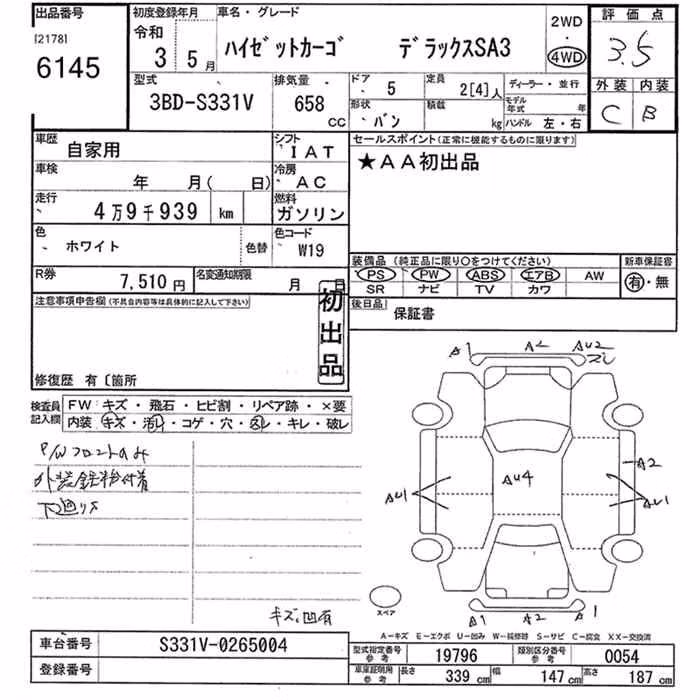 出品番号
[2178]
6145
初度登録年月
令和
3 5月
車名・グレード
ハイゼットカーゴ デラックスSA3
2WD
・
4WD
評価点
3.5
外装 内装
C B
型式
3BD-S331V
排気量
658
CC
ドア
5
定員
2[4]人
ディーラー・並行
形状
バン
積載
kg
モデル年式 年
ハンドル 左・右
車歴
自家用
シフト
IAT
車検
年 月( 日)
冷房
AC
走行
4万9千939 km
燃料
ガソリン
色
ホワイト
色替
色コード
W19
R券
7,510円
名変通知期限
月 日
セールスポイント(正常に機能するものに限ります)
★AA初出品
装備品(純正品に限り〇をつけてください)
PS PW ABS エアB AW
SR ナビ TV カワ
新車保証書
有・無
後日品
保証書
注意事項申告欄(不具合内容等は具体的に記入して下さい)
初出品
修復歴 有〔箇所
検査員記入欄
FW キズ・飛石・ヒビ割・リペア跡・×要
内装 キズ・汚レ・コゲ・穴・凶レ・キレ・破レ
P/Wフロントのみ
下廻りス
キズ凹有
A1 A2 AU2
AU4
A2
AU1 AU1
A1 A2 A1
スペア
A-キズ E-エクボ U-凹み W-補修跡 S-サビ C-腐食 XX-交換済
車台番号
S331V-0265004
登録番号
型式指定番号
参考
19796
類別区分番号
参考
0054
車庫証明用
参考
長さ 339 cm 幅 147 cm 高さ 187 cm